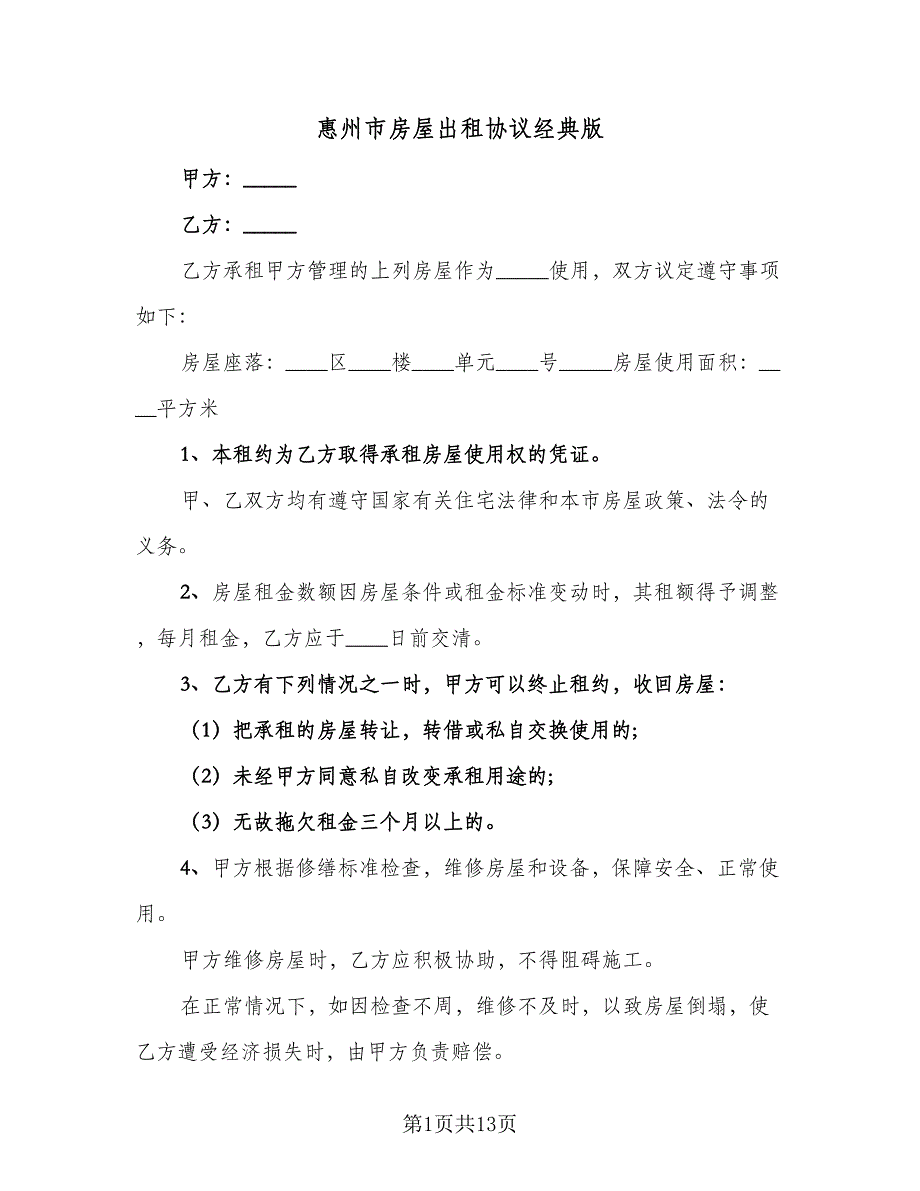 惠州市房屋出租协议经典版
甲方：_____
乙方：_____
乙方承租甲方管理的上列房屋作为_____使用，双方议定遵守事项
如下：
房屋座落：____区____楼____单元____号_____房屋使用面积：__
__平方米
1、本租约为乙方取得承租房屋使用权的凭证。
甲、乙双方均有遵守国家有关住宅法律和本市房屋政策、法令的
义务。
2、房屋租金数额因房屋条件或租金标准变动时，其租额得予调整
，每月租金，乙方应于____日前交清。
3、乙方有下列情况之一时，甲方可以终止租约，收回房屋：
（1）把承租的房屋转让，转借或私自交换使用的；
（2）未经甲方同意私自改变承租用途的；
（3）无故拖欠租金三个月以上的。
4、甲方根据修缮标准检查，维修房屋和设备，保障安全、正常使
用。
甲方维修房屋时，乙方应积极协助，不得阻碍施工。
在正常情况下，如因检查不周，维修不及时，以致房屋倒塌，使
乙方遭受经济损失时，由甲方负责赔偿。
第1页共13页